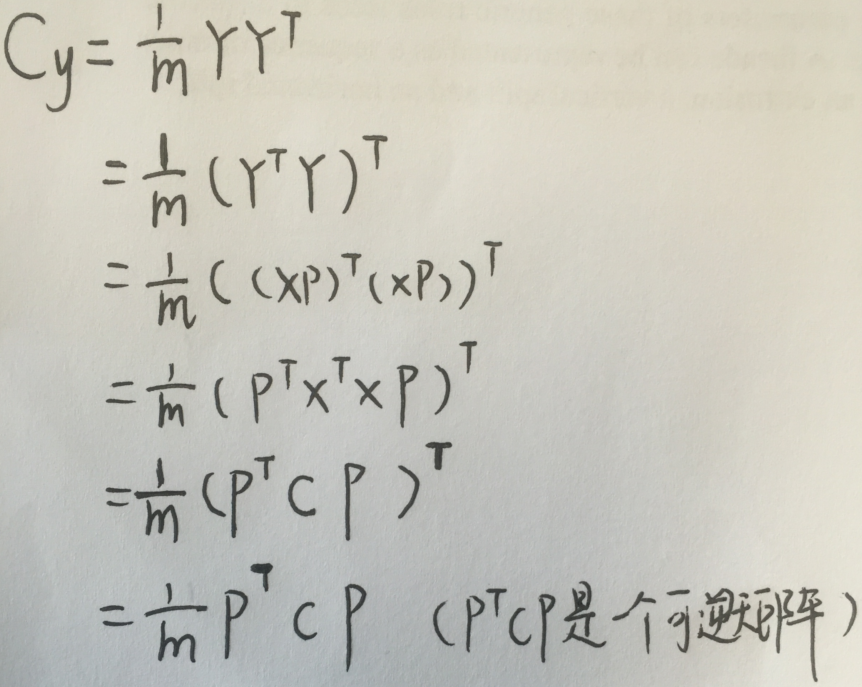 Cy = 1/m YYᵀ
= 1/m (YᵀY)ᵀ
= 1/m ((XP)ᵀ(XP))ᵀ
= 1/m (PᵀXᵀXP)ᵀ
= 1/m (PᵀCP)ᵀ
= 1/m PᵀCP (PᵀCP是一个可逆矩阵)